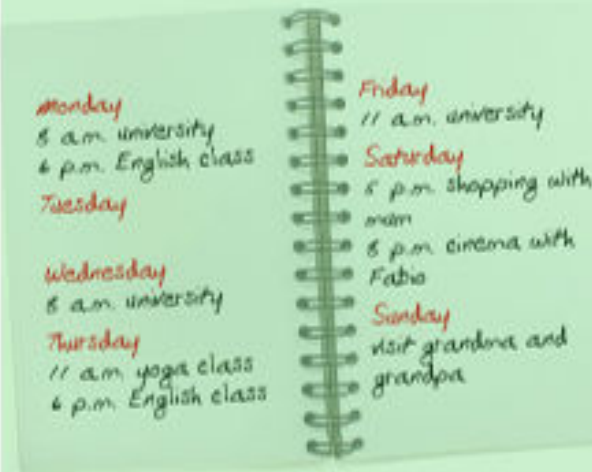 Monday
8 a.m. university
6 p.m. English class
Tuesday
Wednesday
8 a.m. university
Thursday
11 a.m. yoga class
6 p.m. English class
Friday
11 a.m. university
Saturday
5 p.m. shopping with
mum
8 p.m. cinema with
Fabio
Sunday
visit grandma and
grandpa